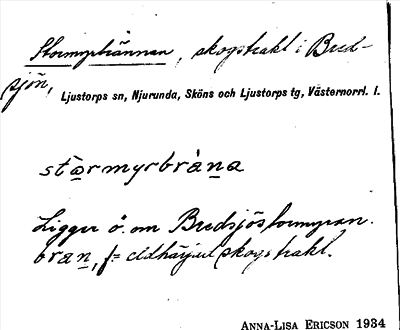 Stormyrbrännan, skogstrakt i Bred-
sjön, Ljustorps sn, Njurunda, Sköns och Ljustorps tg, Västernorrl. l.
stormyrbràna
Ligger ö. om Bredsjöstormyran.
bran, f = eldhärjad skogstrakt.
ANNA-LISA ERICSON 1934